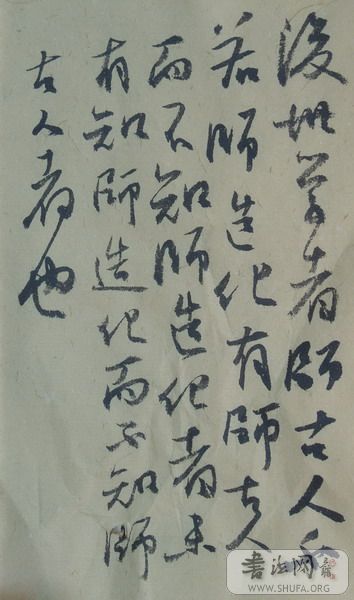 後世学者師古人不
若師造化有師古人
而不知師造化者未
有知師造化而不知師
古人者也
书法网
WWW.SHUFA.ORG